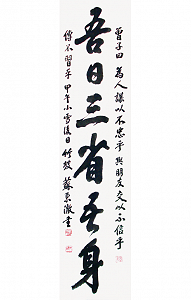 曾子曰 為人謀以不忠乎 與朋友交以不信乎
吾日三省吾身
傳不習乎 甲午小雪後日 蘇書